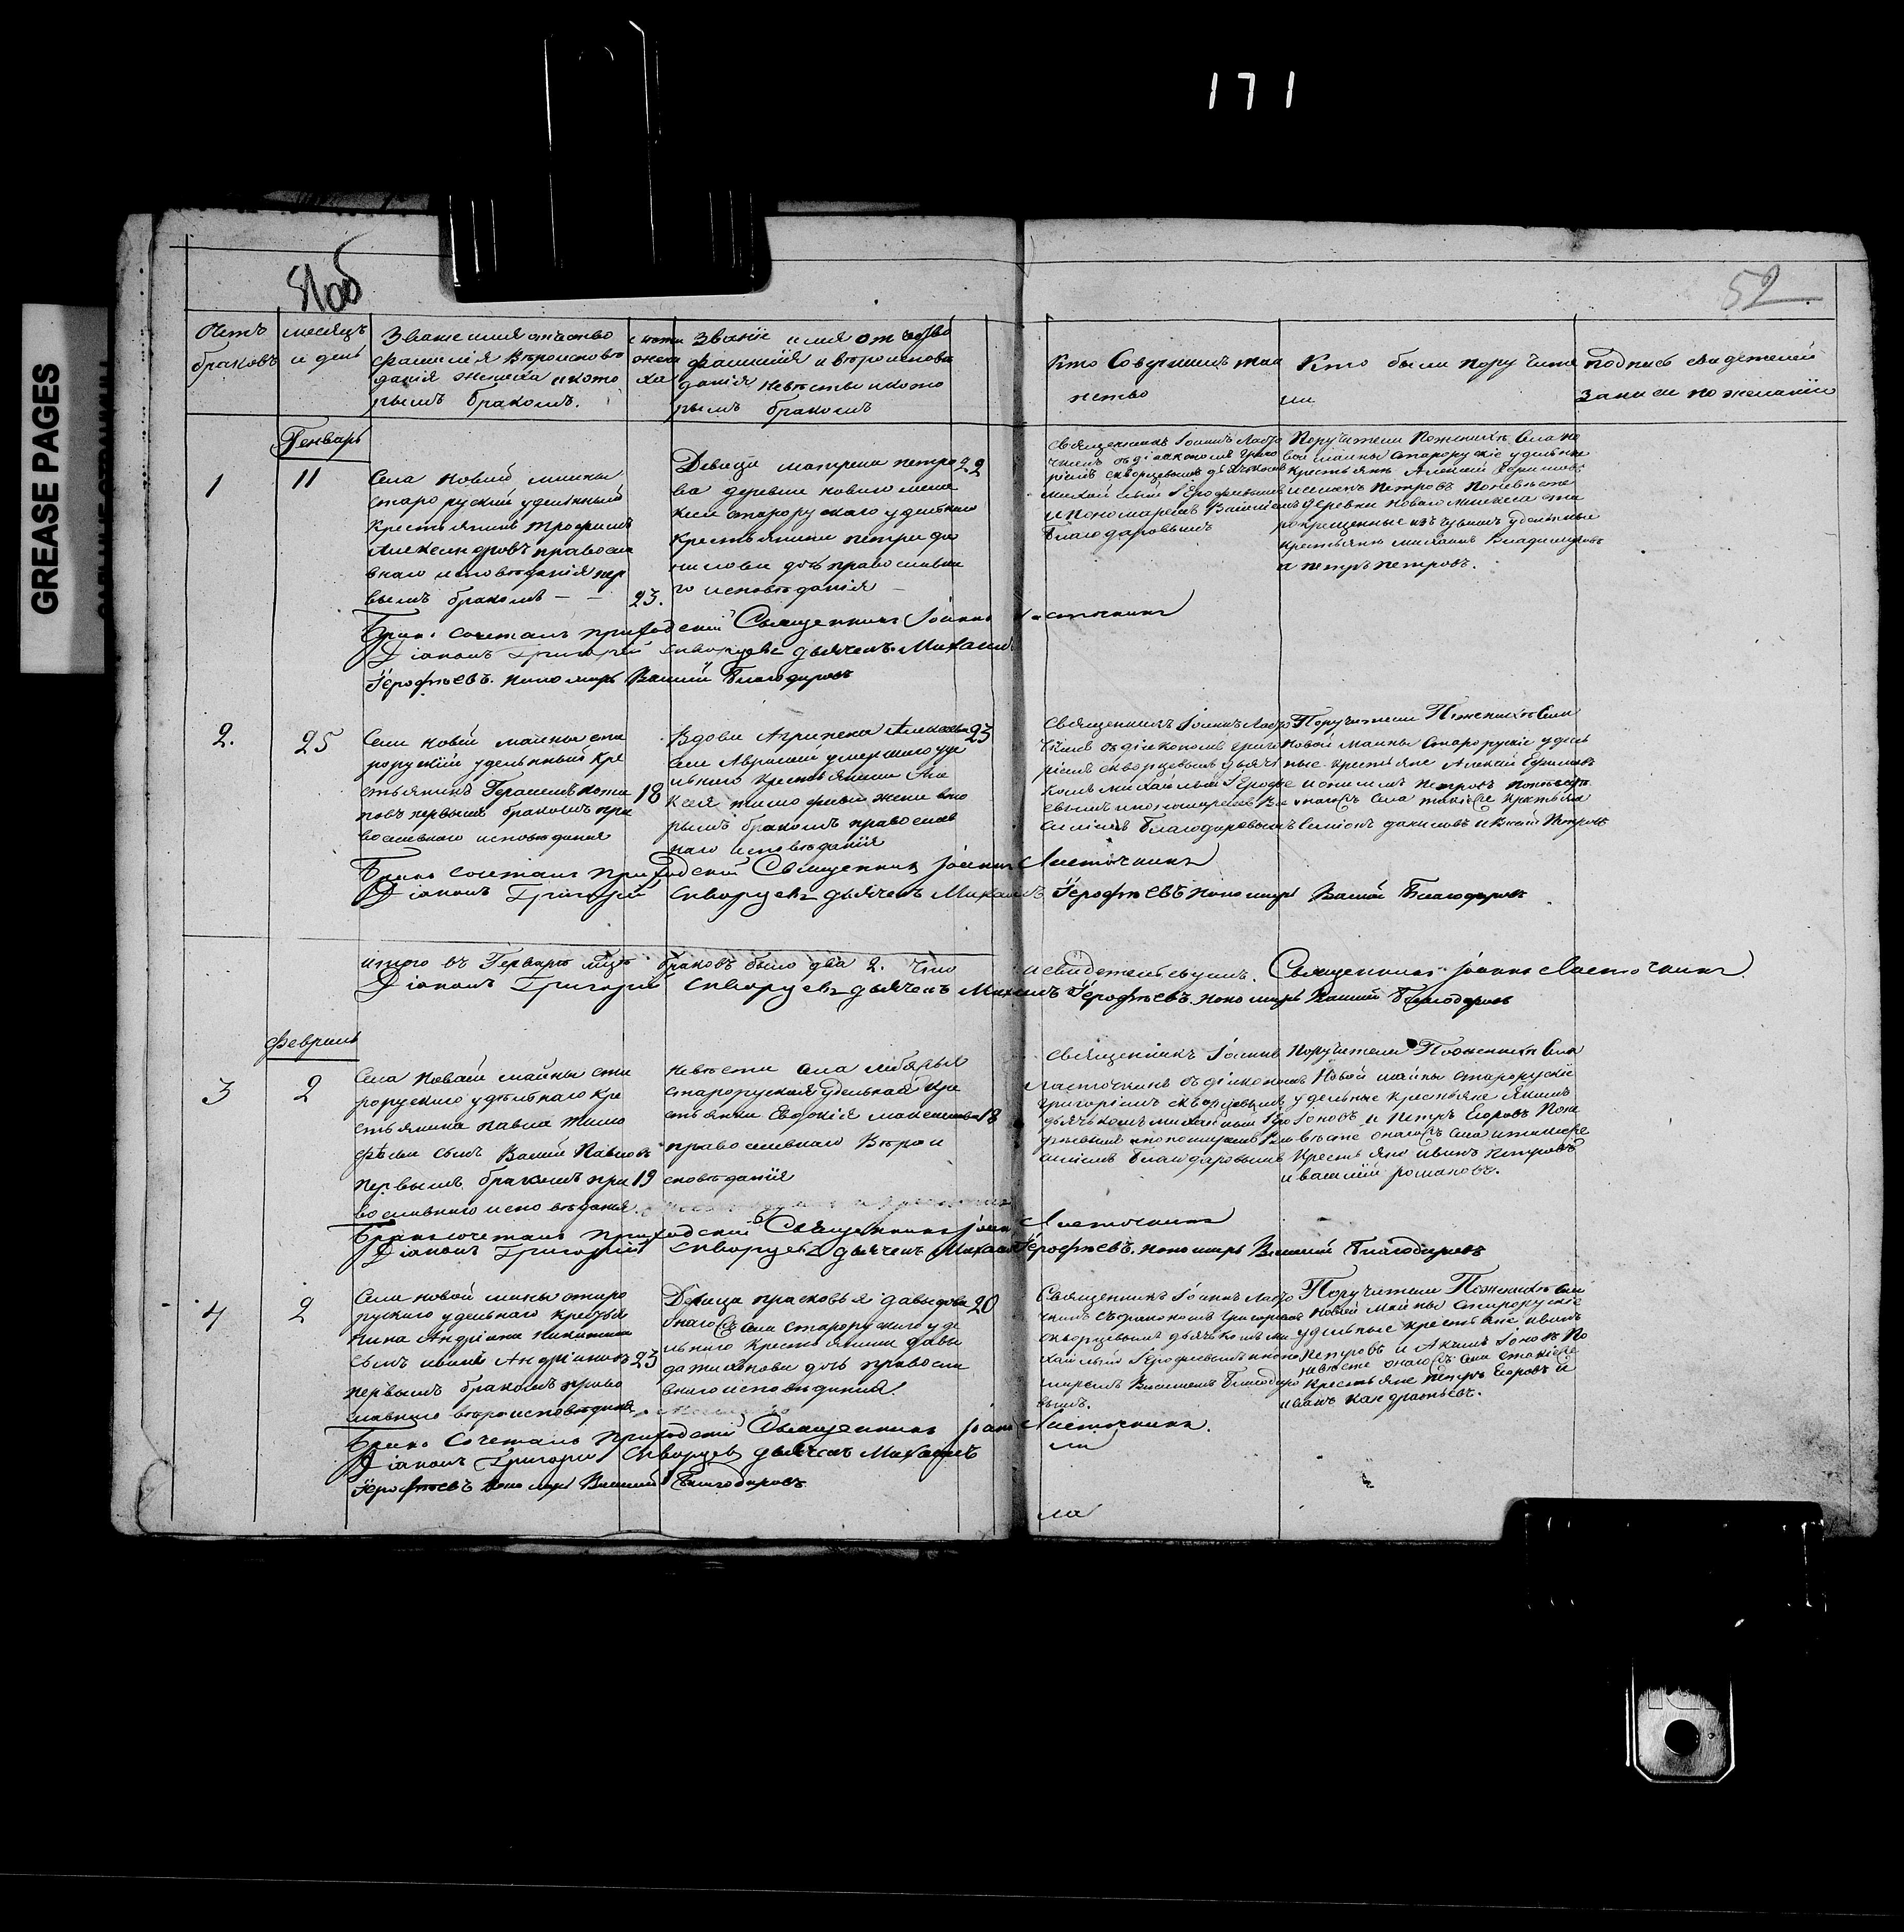 171
GREASE PAGES
52
Счетъ
браковъ
месяцъ
и день
Званіе имя отчество
фамилія и вероиспове
данія жениха и кото
рымъ бракомъ.
Званіе имя отчество
фамилія и вероиспове
данія невѣсты и кото
рымъ бракомъ
Кто Совершилъ таи
нство
Кто были поручите
ли
подпись свидетелей
записи по желанію
Генварь
1
11
Села новой майны
старо руский удельный
крестьянинъ Трофимъ
Александровъ правосла
внаго исповѣданія пер
вымъ бракомъ
23.
Девица матрена петро
ва деревни новаго
старорускаго удельнаго
крестьянина петра
дочь православна
го исповѣданія
22
Священникъ Іоаннъ Ласто
чкинъ съ діакономъ Григо
ріемъ скворцевымъ дьячкомъ
Михайлой Іерофеевымъ
и пономаремъ Василіемъ
Благодаровымъ
Поручители По женихѣ Села но
вой майны старорускіе удельные
крестьяне Алексей Ефимовъ
и Петровъ По невѣсте
деревни новаго ста
рокрещенные изъ чувашъ удельные
крестьяне Владимировъ
и петръ петровъ.
Бракъ сочеталъ приходский Священникъ Іоаннъ Ласточкинъ
Діаконъ Григорій Скворцевъ дьячекъ Михаилъ
Іерофѣевъ. пономарь Василій Благодаровъ
2.
25
Села новой майны ста
роруский удельный кре
стьянинъ Герасимъ
первымъ бракомъ пра
вославнаго исповѣданія
18
Вдова Агрипена
умершаго уде
льнаго крестьянина
жена вто
рымъ бракомъ православ
наго исповѣданія
23
Священникъ Іоаннъ Ласто
чкинъ съ діакономъ григо
ріемъ скворцевымъ дьяч
комъ михайлой Іерофе
евымъ и пономаремъ Ва
силіемъ Благодаровымъ
Поручители По женихѣ Села
Новой Майны Старорускіе удель
ные крестьяне Алексей Ефимовъ
и Петровъ По невѣсте
онагожъ села такіеже крестьяне
Семенъ даниловъ и Петровъ
Бракъ сочеталъ приходский Священникъ Іоаннъ Ласточкинъ
Діаконъ Григорій Скворцевъ дьячекъ Михаилъ Іерофѣевъ пономарь Василій Благодаровъ
итого въ Генварѣ мцѣ браковъ было два 2. что и свидетельствуемъ. Священникъ Іоаннъ Ласточкинъ.
Діаконъ Григорій Скворцевъ дьячекъ Михаилъ Іерофѣевъ. пономарь Василій Благодаровъ
февраль
3
2
Села Новой майны ста
рорускаго удѣльнаго кре
стьянина павла Тимо
фѣева сынъ Василій Павловъ
первымъ бракомъ пра
вославнаго исповѣданія.
19
невѣста села
старорускаго удельная кре
стьянка Евдокія максимова
православнаго Вѣрои
сповѣданія
18
Священникъ Іоаннъ
Ласточкинъ съ діакономъ
григоріемъ скворцевымъ
дьячкомъ михайлой Іеро
фѣевымъ и пономаремъ Ва
силіемъ Благодаровымъ
Поручители По женихѣ Села
Новой майны старорускіе
удельные крестьяне Якимъ
Іоновъ и Петръ Егоровъ По не
вѣсте онагожъ села и такіеже
крестьяне иванъ петровъ
и василий романовъ.
Бракъ сочеталъ приходский Священникъ Іоаннъ Ласточкинъ
Діаконъ Григорій Скворцевъ дьячекъ Михаилъ Іерофѣевъ. пономарь Василій Благодаровъ
4
2
Села новой майны старо
рускаго удельнаго крестья
нина Андріана Никитина
сынъ Андріановъ
первымъ бракомъ право
славнаго вѣроисповѣданія
23
Девица прасковья давыдова
онагожъ села старорускаго уде
льнаго крестьянина давы
да дочь правосла
внаго исповѣданія.
20
Священникъ Іоаннъ Ласто
чкинъ съ діакономъ Григоріемъ
скворцевымъ дьячкомъ ми
хайлой Іерофеевымъ и поно
маремъ Василіемъ Благодаро
вымъ.
Поручители По женихѣ Села
Новой Майны Старорускіе
удельные крестьяне иванъ
Петровъ и Якимъ Іоновъ По
невѣсте онагожъ села такіеже
крестьяне петръ Егоровъ и
иванъ кандратьевъ.
Бракъ Сочеталъ приходский Священникъ Іоаннъ Ласточкинъ.
Діаконъ Григорій Скворцевъ дьячекъ Михаилъ
Іерофѣевъ пономарь Василий Благодаровъ